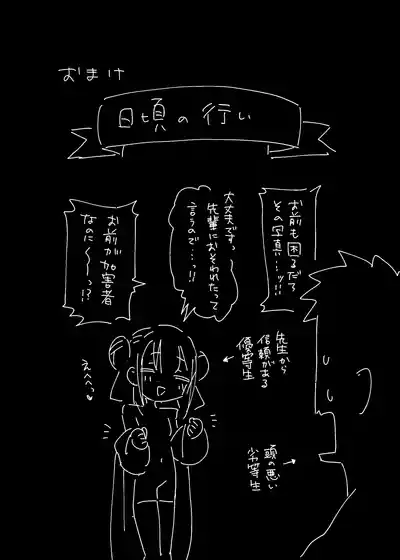 おまけ
日頃の行い
お前も困るだろ
その写真…ッ!!!
大丈夫ですっ
先輩におそわれたって
言うので…っ!!
お前が加害者
なのに〜〜っ!?
先生から
信頼がある
優等生
えへへっ♥
頭の悪い
劣等生